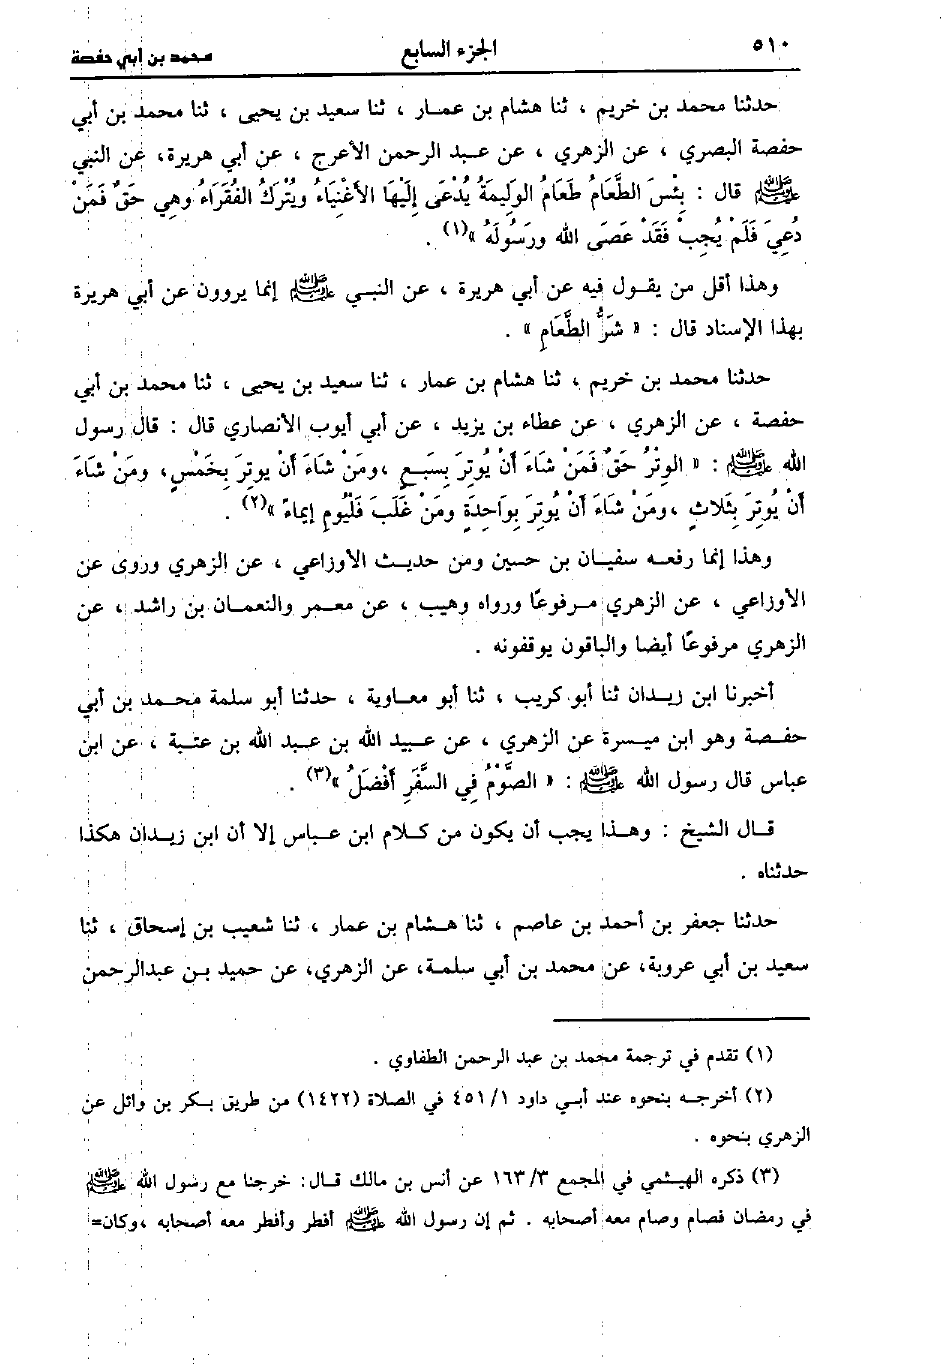 ٥١٠ الجزء السابع محمد بن أبي حفصة
حدثنا محمد بن خريم ، ثنا هشام بن عمار ، ثنا سعيد بن يحيى ، ثنا محمد بن أبي
حفصة البصري ، عن الزهري ، عن عبد الرحمن الأعرج ، عن أبي هريرة، عن النبي
ﷺ قال : بِئْسَ الطَّعَامُ طَعَامُ الوَلِيمَةُ يُدْعَى إِلَيْهَا الأَغْنِيَاءُ ويُتْرَكُ الفُقَرَاءُ وهي حَقٌ فَمَنْ
دُعِيَ فَلَمْ يُجِبْ فَقَدْ عَصَى الله ورَسُولَهُ »(١) .
وهذا أقل من يقول فيه عن أبي هريرة ، عن النبي ﷺ إنما يروون عن أبي هريرة
بهذا الإسناد قال : « شَرُّ الطَّعَامِ » .
حدثنا محمد بن خريم ، ثنا هشام بن عمار ، ثنا سعيد بن يحيى ، ثنا محمد بن أبي
حفصة ، عن الزهري ، عن عطاء بن يزيد ، عن أبي أيوب الأنصاري قال : قال رسول
الله ﷺ : « الوِتْرُ حَقٌ فَمَنْ شَاءَ أَنْ يُوتِرَ بِسَبعٍ ،ومَنْ شَاءَ أَنْ يوتِرَ بِخَمْسٍ، ومَنْ شَاءَ
أَنْ يُوتِرَ بِثَلاثٍ ،ومَنْ شَاءَ أَنْ يُوتِرَ بِوَاحِدَةٍ ومَنْ غَلَبَ فَلْيُومِ إيماءً »(٢) .
وهذا إنما رفعه سفيان بن حسين ومن حديث الأوزاعي ، عن الزهري وروى عن
الأوزاعي ، عن الزهري مرفوعًا ورواه وهيب ، عن معمر والنعمان بن راشد ، عن
الزهري مرفوعًا أيضا والباقون يوقفونه .
أخبرنا ابن زيدان ثنا أبو كريب ، ثنا أبو معاوية ، حدثنا أبو سلمة محمد بن أبي
حفصة وهو ابن ميسرة عن الزهري ، عن عبيد الله بن عبد الله بن عتبة ، عن ابن
عباس قال رسول الله ﷺ : « الصَّوْمُ فِي السَّفَرِ أَفْضَلُ »(٣) .
قال الشيخ : وهذا يجب أن يكون من كلام ابن عباس إلا أن ابن زيدان هكذا
حدثناه .
حدثنا جعفر بن أحمد بن عاصم ، ثنا هشام بن عمار ، ثنا شعيب بن إسحاق ، ثنا
سعيد بن أبي عروبة، عن محمد بن أبي سلمة، عن الزهري، عن حميد بن عبدالرحمن
(١) تقدم في ترجمة محمد بن عبد الرحمن الطفاوي .
(٢) أخرجه بنحوه عند أبي داود ٤٥١/١ في الصلاة (١٤٢٢) من طريق بكر بن وائل عن
الزهري بنحوه .
(٣) ذكره الهيثمي في المجمع ١٦٣/٣ عن أنس بن مالك قال: خرجنا مع رسول الله ﷺ
في رمضان فصام وصام معه أصحابه . ثم إن رسول الله ﷺ أفطر وأفطر معه أصحابه ،وكان=